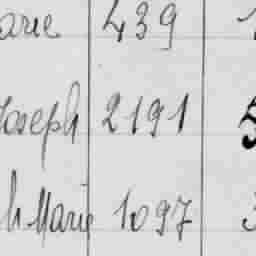 arie 439
Joseph 2191 5
h Marie 1097 3